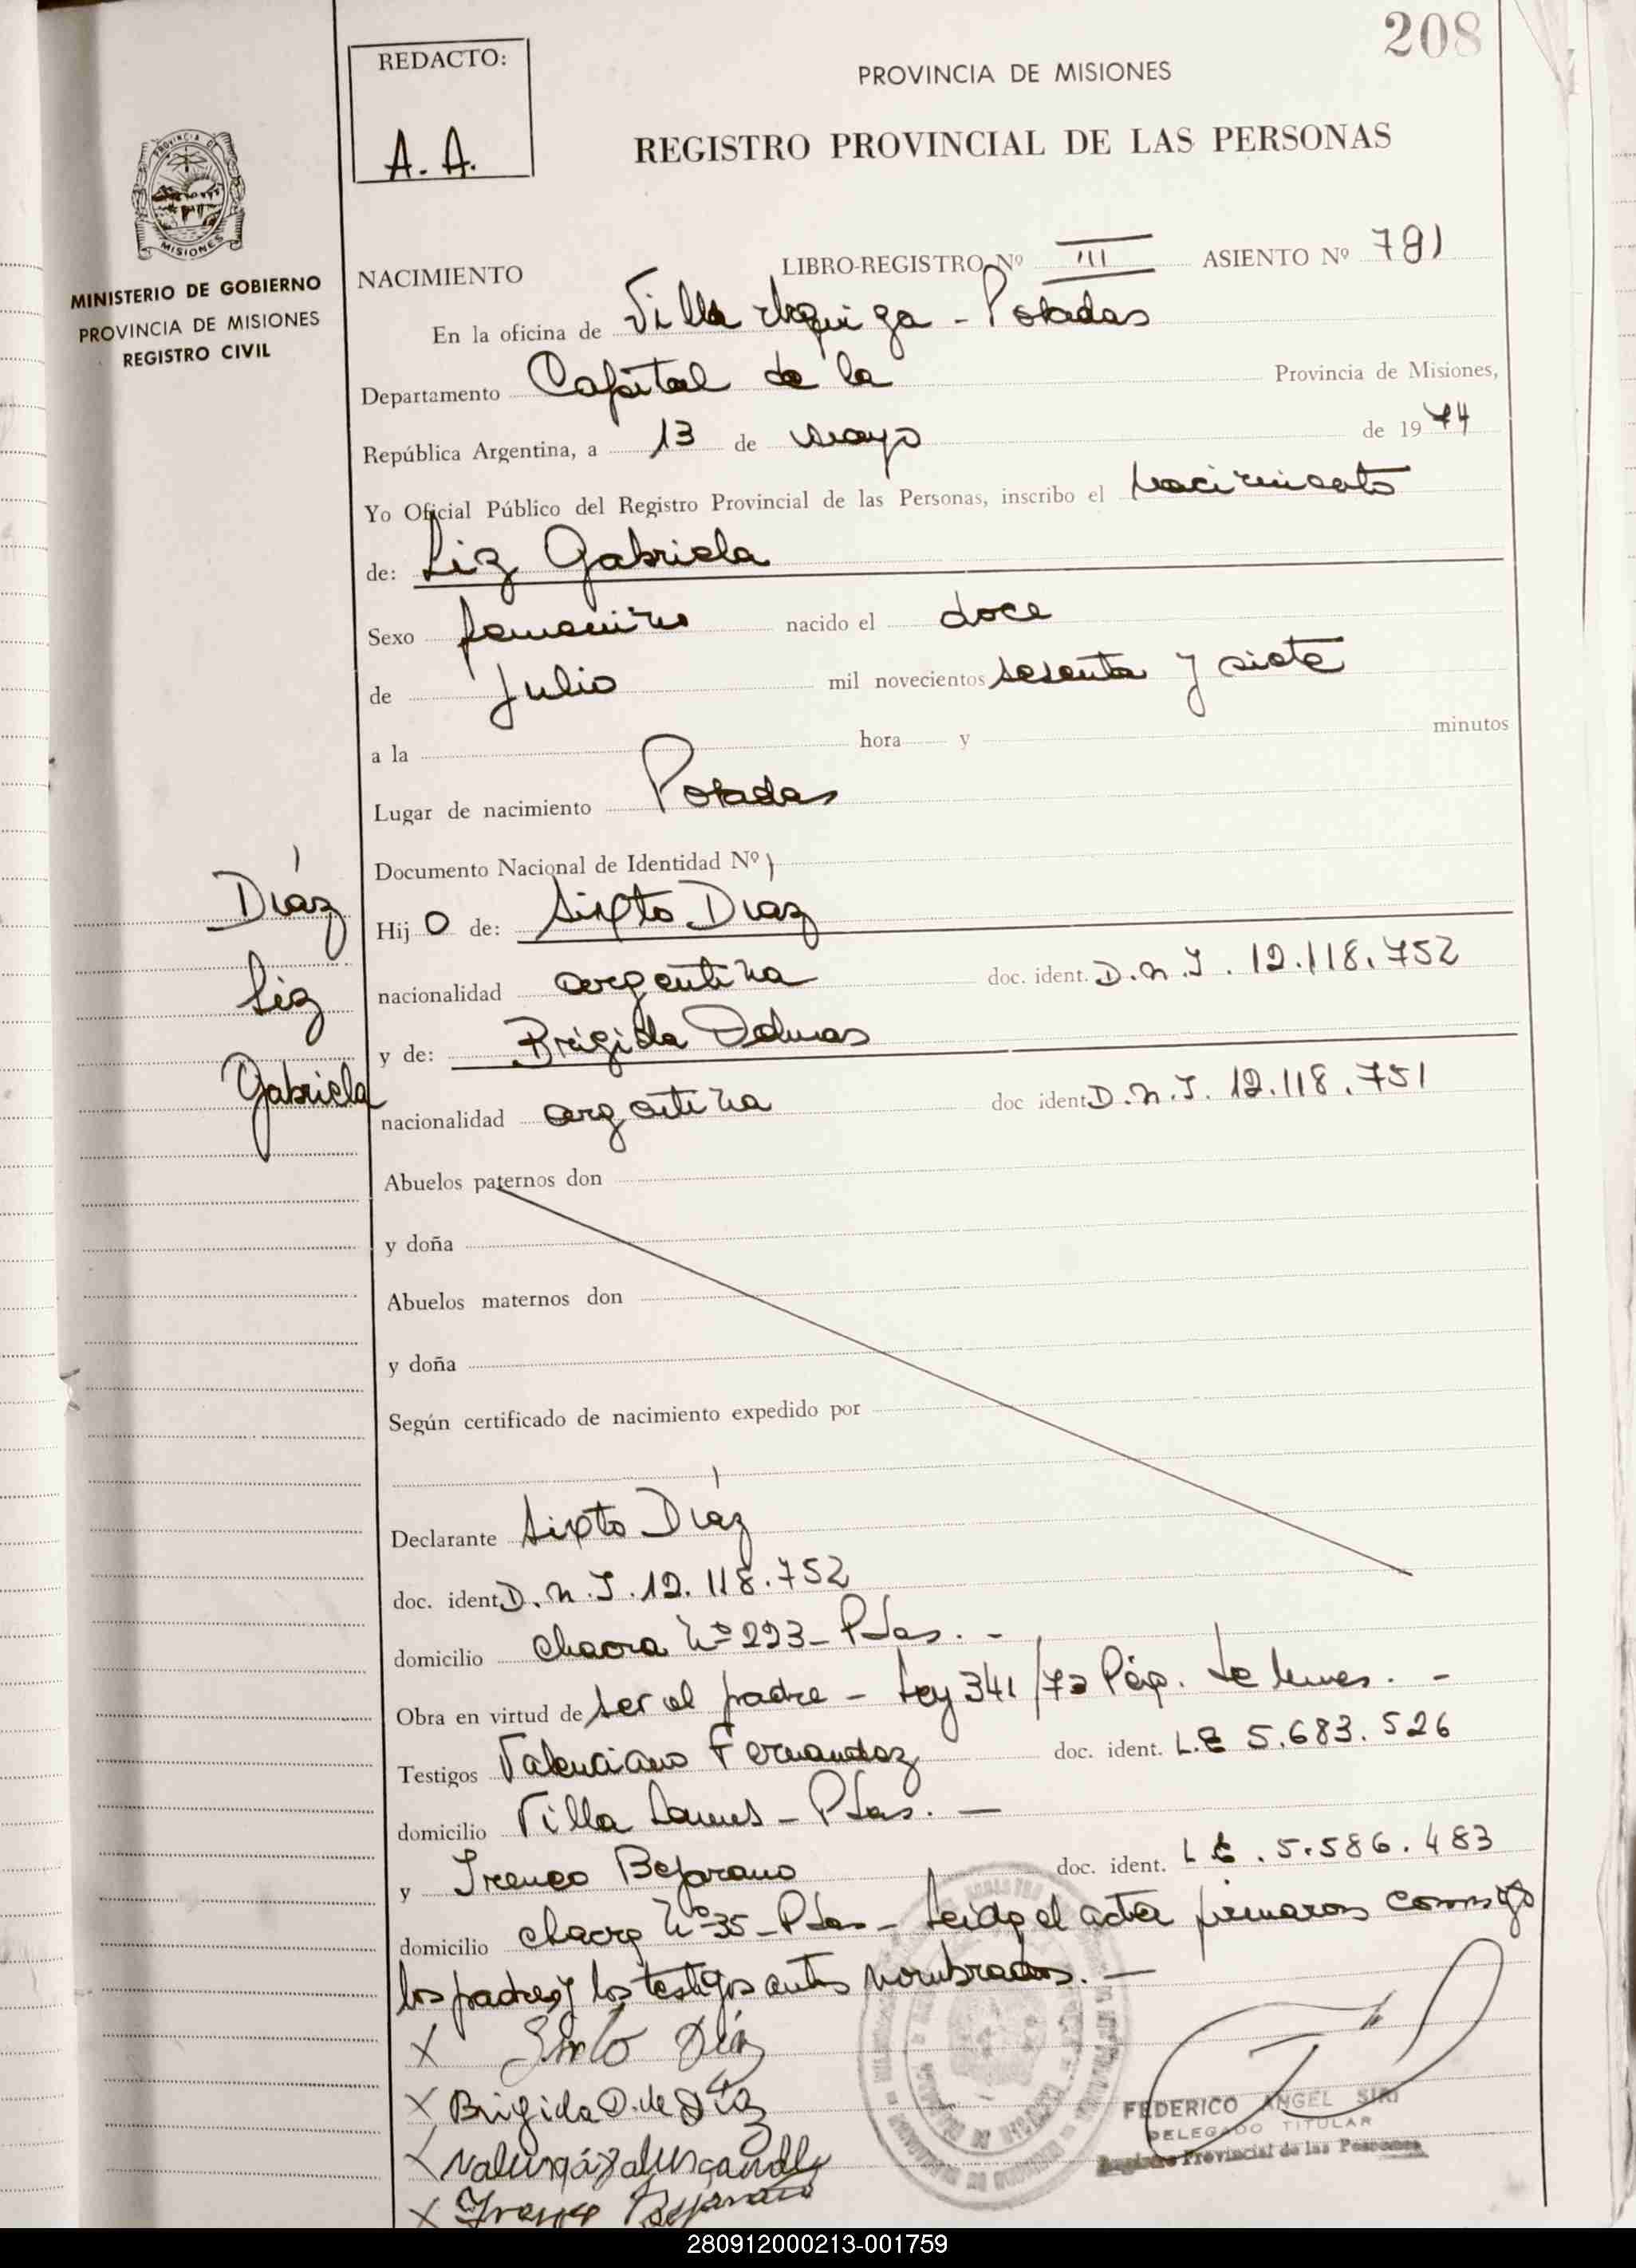 208
REDACTO:
A. A.
PROVINCIA DE MISIONES
REGISTRO PROVINCIAL DE LAS PERSONAS
PROVINCIA DE
MISIONES
MINISTERIO DE GOBIERNO
PROVINCIA DE MISIONES
REGISTRO CIVIL
NACIMIENTO LIBRO-REGISTRO Nº III ASIENTO Nº 791
En la oficina de Villa Urquiza - Posadas
Departamento Capital de la Provincia de Misiones,
República Argentina, a 13 de mayo de 1974
Yo Oficial Público del Registro Provincial de las Personas, inscribo el nacimiento
de: Liz Gabriela
Sexo femenino nacido el doce
de Julio mil novecientos sesenta y siete
a la hora y minutos
Lugar de nacimiento Posadas
Documento Nacional de Identidad Nº
Díaz
Liz
Gabriela
Hijo de: Sixto Diaz
nacionalidad argentina doc. ident. D.N.I. 12.118.752
y de: Brígida
nacionalidad argentina doc ident D.N.I. 12.118.751
Abuelos paternos don
y doña
Abuelos maternos don
y doña
Según certificado de nacimiento expedido por
Declarante Sixto Díaz
doc. ident D.N.I. 12.118.752
domicilio chacra Nº 223 - Pdas. -
Obra en virtud de ser el padre - Ley 341/72
Testigos Valenciano Fernandez doc. ident. L.E 5.683.526
domicilio Villa Lanus - Pdas. -
y Ireneo Bejarano doc. ident. L E. 5.586.483
domicilio chacra Nº 35 - Pdas - Leida el acta firmaron conmigo
los padres y los testigos antes nombrados. -
X Sixto Díaz
X Brigida D. de Díaz
X
X Ireneo Bejarano
FEDERICO ANGEL SIRI
DELEGADO TITULAR
Registro Provincial de las Personas
280912000213-001759